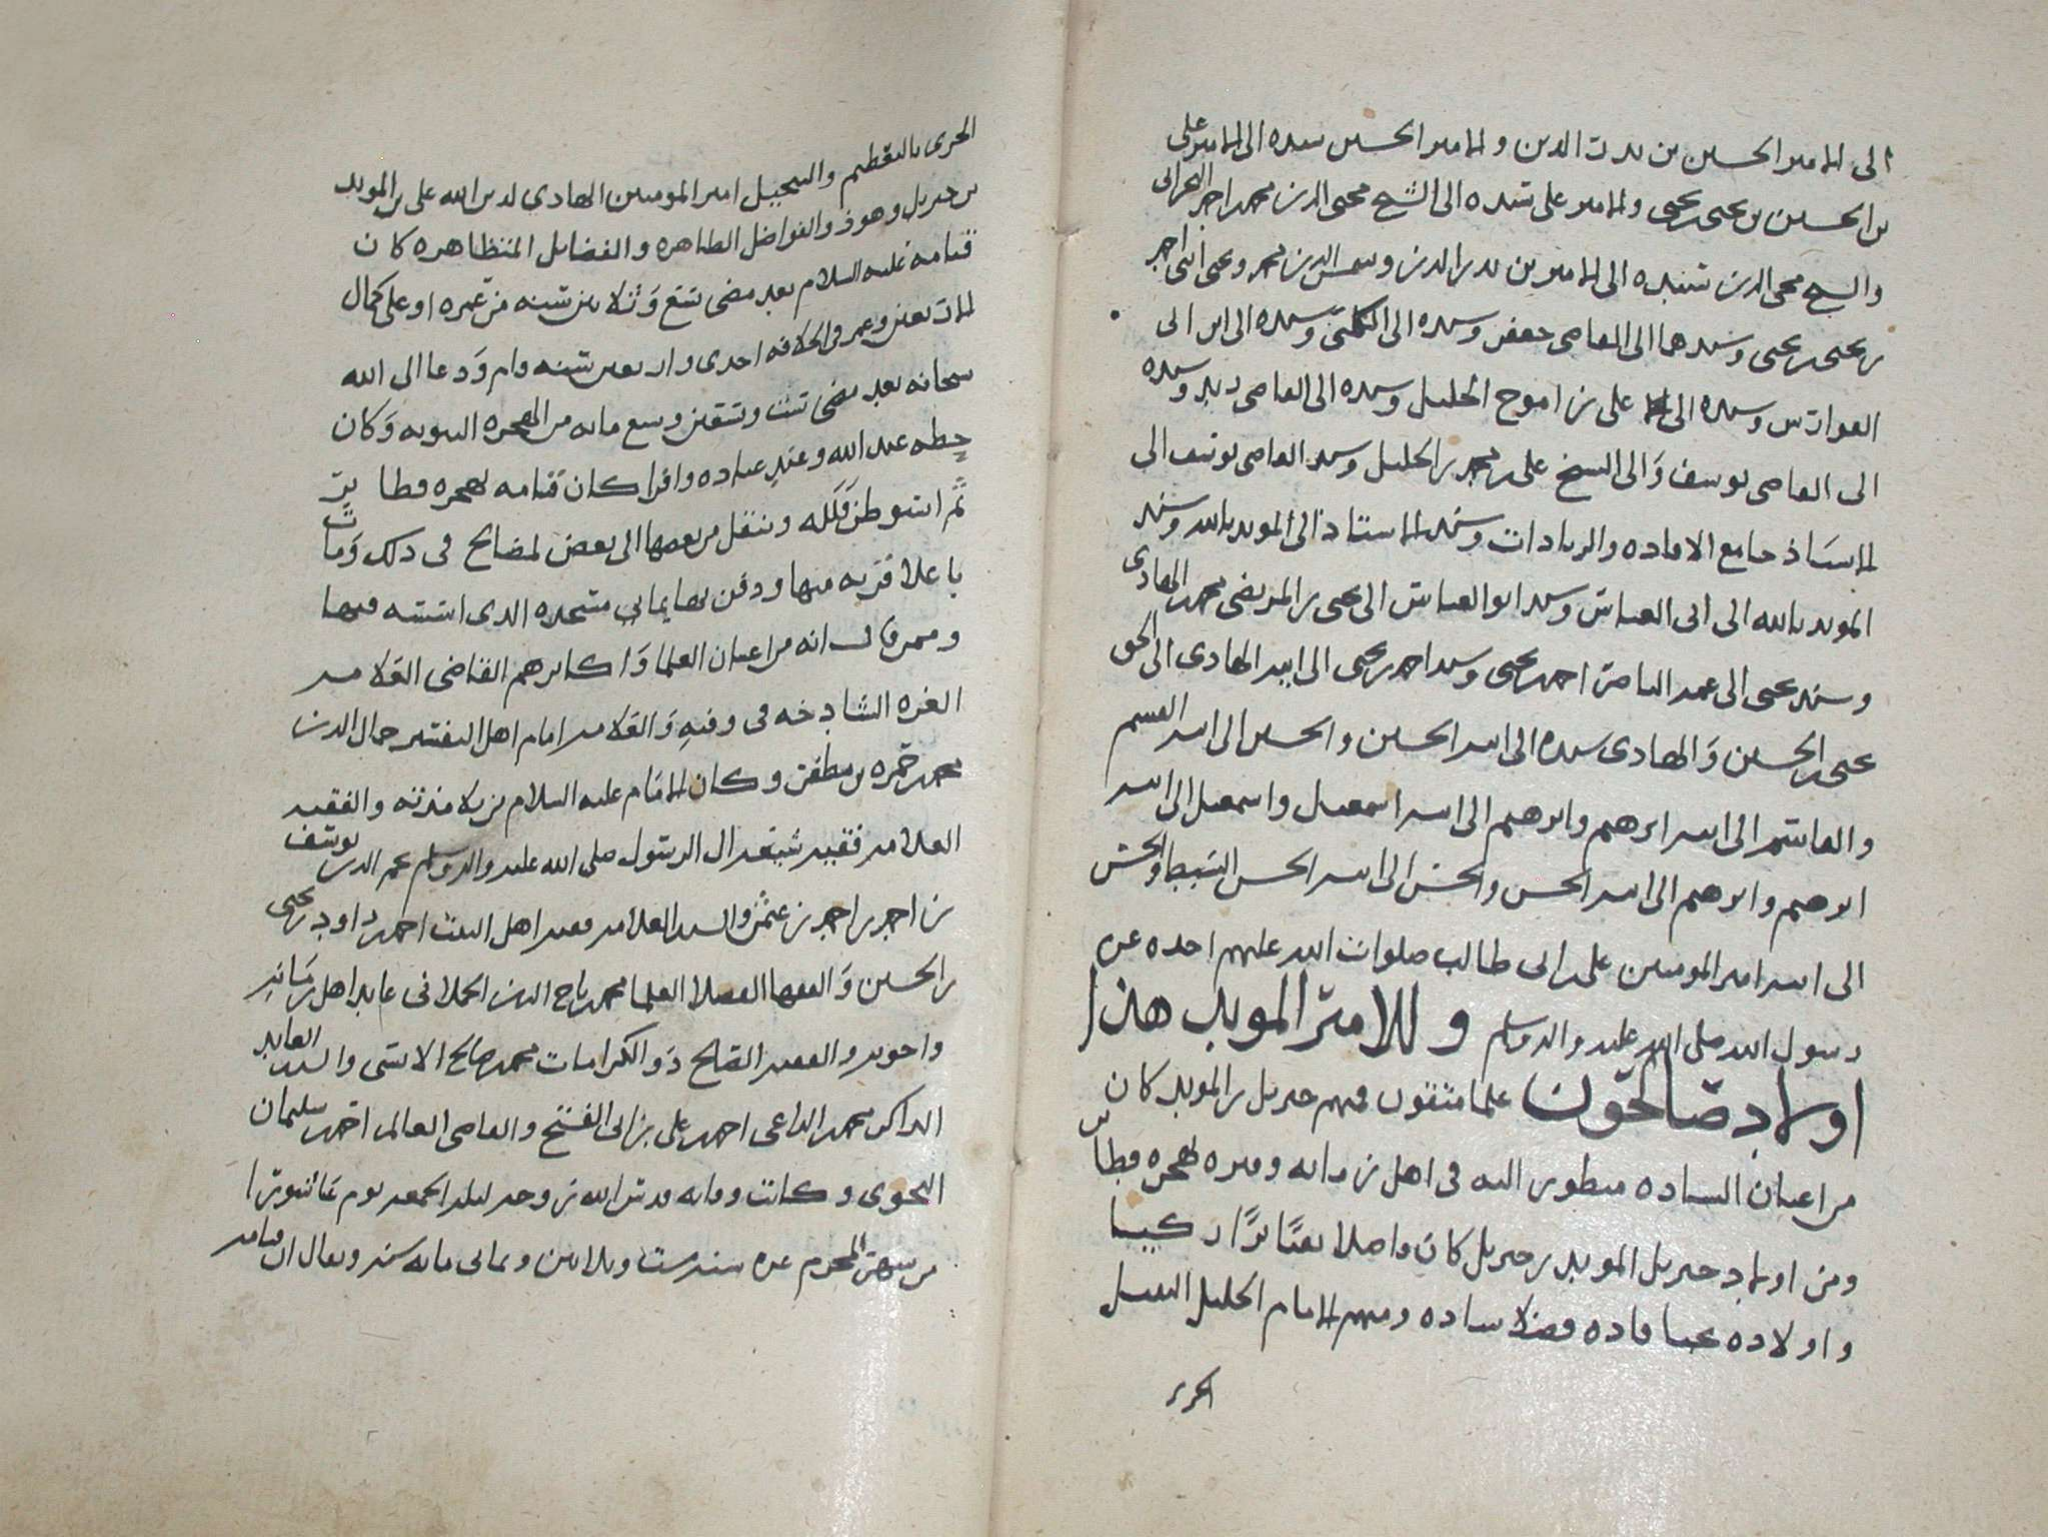 الى الامير الحسين بن بدر الدين والامير الحسين سنده الى الامير على
بن الحسين بن يحيى بن يحيى والامير على سنده الى الشيخ محيى الدين محمد بن احمد النجرانى
والشيخ محيى الدين سنده الى الاميرين بدر الدين وشمس الدين محمد ويحيى ابنى احمد
بن يحيى بن يحيى وسندهما الى القاضى جعفر وسنده الى الكنى وسنده الى ابن ابى
الفوارس وسنده الى على بن اموج الجليل وسنده الى القاضى زيد وسنده
الى القاضى يوسف وَالى الشيخ على بن محمد بن الخليل وسند القاضى يوسف الى
الاستاذ جامع الافاده والزيادات وسند الاستاذ الى المويد بالله وسند
المويد بالله الى ابى العباس وسند ابو العباس الى يحيى بن المرتضى محمد بن الهادى
وسند يحيى الى عمه الناصر احمد بن يحيى وسند احمد بن يحيى الى ابيه الهادى الى الحق
يحيى بن الحسين وَالهادى سنده الى ابيه الحسين والحسين الى ابيه القسم
والقاسم الى ابيه ابرهيم وابرهيم الى ابيه اسمعيل واسمعيل الى ابيه
ابرهيم وابرهيم الى ابيه الحسن والحسن الى ابيه الحسن السبط والحسن
الى ابيه امير المومنين على بن ابى طالب صلوات الله عليهم اخذه عن
رسول الله صلى الله عليه واله وسلم وللامير المويد هذا
اولاد صالحون علما متقون فمنهم جبريل بن المويد كان
من اعيان الساده منظور اليه فى اهل زمانه وقبره بهجره قطابر
ومن اولاد جبريل المويد بن جبريل كان فاضلا تقيًا برًا زكيا
واولاده نجبا قاده فضلا ساده ومنهم الامام الجليل النبيل
الحرى
الحرى بالتعظيم والتبجيل امير المومنين الهادي لدين الله على بن المويد
بن جبريل وهو ذو الفواضل الظاهره والفضايل المتظاهره كان
قيامه عليه السلام بعد مضى تسع وَثلاثين سنه من عمره او على كمال
الاربعين وعمر فى الخلافه احدى واربعين سنه قام وَدعا الى الله
سبحانه بعد مضى ست وتسعين وسبع مايه من الهجره النبويه وَكان
عند الله وعند عباده وافرا كان قيامه بهجره قطابر
ثم استوطن فَلَله وتنقل من بعضها الى بعض لمصالح فى ذلك وَمات
باعلا قريه منها ودفن بها يمانى مسجده الذى اسسه فيها
وممن قال انه من اعيان العلما وَاكابرهم القاضى العلامه
الغره الشادخه فى وقته وَالعلامه امام اهل التفسير جمال الدين
محمد بن حمزه بن مظفر وكان الامام عليه السلام من تلامذته والفقيه
العلامه فقيه شيعه ال الرسول صلى الله عليه واله وسلم نجم الدين يوسف
بن احمد بن احمد بن عثمن والسيد العلامه فقيه اهل البيت احمد بن داود بن يحيى
بن الحسين وَالفقها الفضلا العلما محمد بن تاج الدين عابد اهل زمَانه
واخويه والفقيه الصالح ذو الكرامات محمد بن صالح الانسى والسيد العابد
الذاكر محمد الداعى احمد بن على بن ابى الفتح والقاضى العالم احمد بن سليمان
النحوى وكانت وفاته قدس الله روحه ليله الجمعه يوم عاشورا
من شهر المحرم غره سنه ست وثلاثين وثمانى مايه سنه ويقال ان قيامه